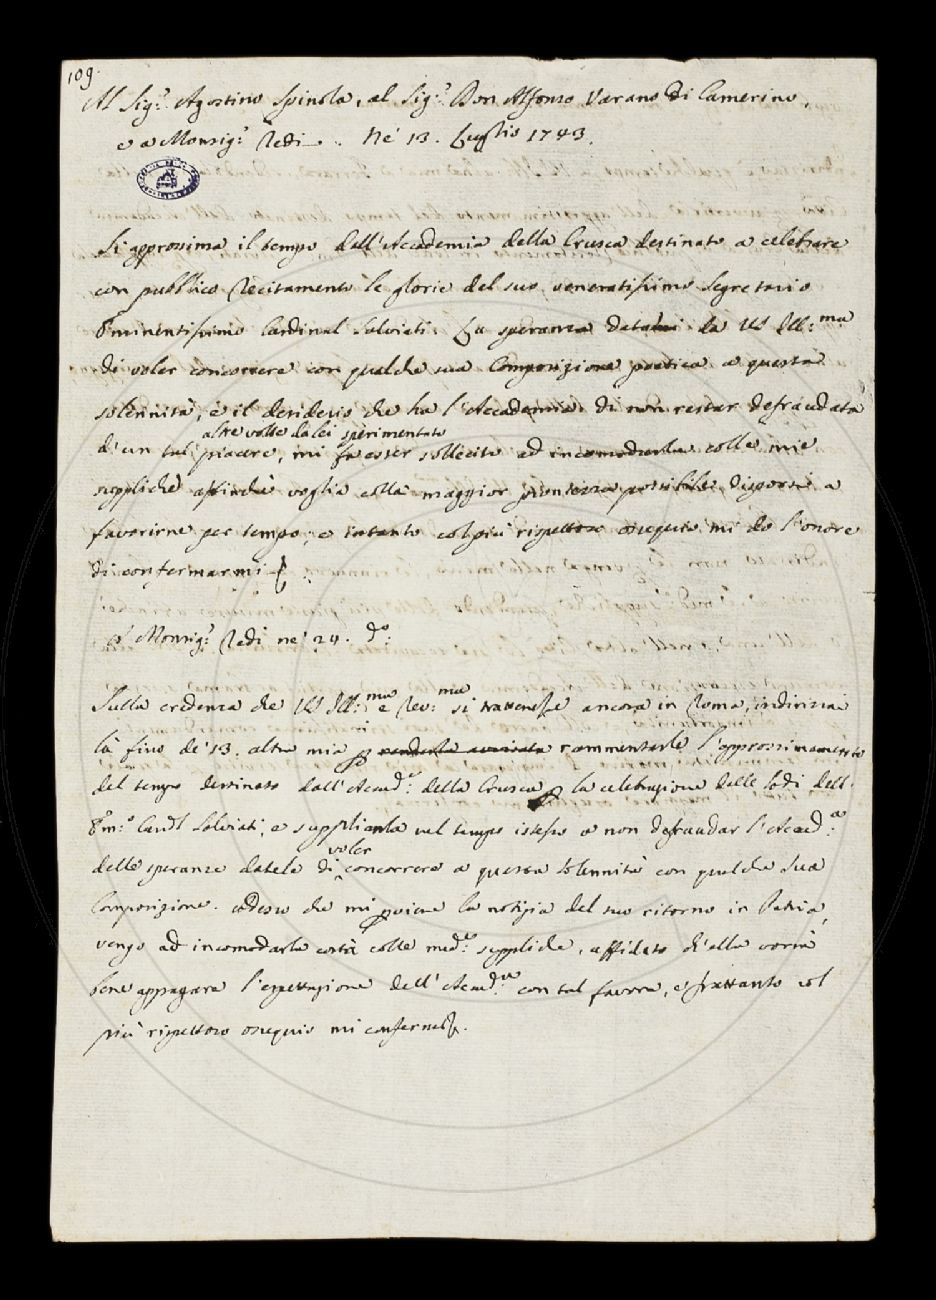 109.
Al Sig.r Agostino Spinola, al Sig.r Don Alfonso Varano di Camerino,
e a Monsig.r Redi. Ne' 13. Luglio 1743.
Si approssima il tempo dall'Accademia della Crusca destinato a celebrare
con pubblico recitamento le glorie del suo veneratissimo Segretario
Eminentissimo Cardinal Salviati. La speranza datami da VS Ill:ma
di voler concorrere con qualche sua Composizione poetica a questa
solennità, e il desiderio che ha l'Accademia di non restar defraudata
altre volte da lei sperimentato
d'un tal piacere, mi fa esser sollecito ad incomodarla colle mie
suppliche affinchè voglia colla maggior prontezza possibile disporsi a
favorirne per tempo; e intanto col più rispettoso ossequio mi do l'onore
di confermarmi
A Monsig.r Redi ne' 24. do:
Sulla credenza che VS Ill:ma e Rev:ma si trattenesse ancora in Roma, indirizzai
là fino de' 13. altra mia p renderla avvisata rammentarle l'approssimamento
del tempo destinato dall'Accad.a della Crusca p la celebrazione delle lodi dell'
Em.o Card.l Salviati, e supplicarla nel tempo istesso a non defraudar l'Accad.a
voler
delle speranze datele di concorrere a questa solennità con qualche sua
Composizione. Adesso che mi pviene la notizia del suo ritorno in Patria,
vengo ad incomodarla costà colle med.e suppliche, affidato ch'ella vorrà
bene appagare l'espettazione dell'Accad.a con tal favore, e frattanto col
più rispettoso ossequio mi confermo